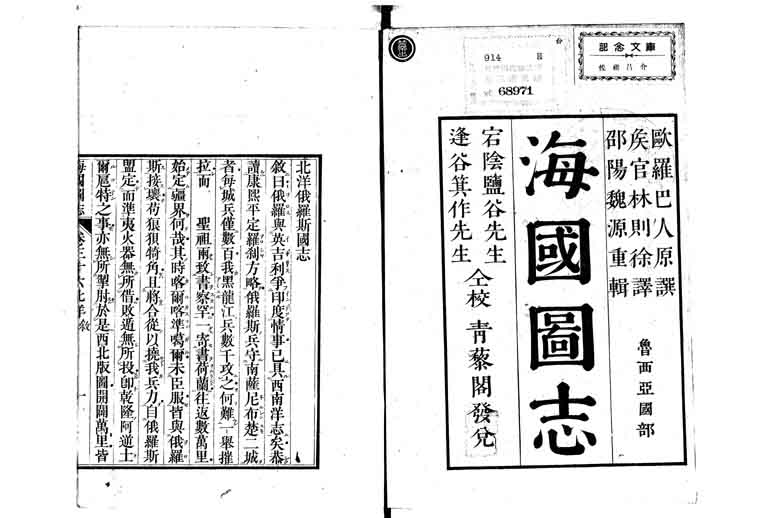 記念文庫
914
68971
歐羅巴人原撰
矦官林則徐譯
邵陽魏源重輯
魯西亞國部
海國圖志
宕陰鹽谷先生
逢谷箕作先生
仝校
靑藜閣發兌
北洋俄羅斯國志
敘曰俄羅與英吉利爭印度情事已具西南洋志矣恭
讀康熙平定羅剎方略俄羅斯兵守南薩尼布楚二城
者每城兵僅數百我黑龍江兵數千攻之何難一舉摧
拉而 聖祖兩致書察罕一寄書荷蘭往返數萬里
始定疆界何哉其時喀爾喀準噶爾未臣服皆與俄羅
斯接壤苟狼狽犄角且將合從以撓我兵力自俄羅斯
盟定而準夷火器無所借敗遁無所投卽乾隆阿道土
爾扈特之事亦無所掣肘於是西北版圖開闢萬里皆
海國圖志
卷三十六北洋敘
一